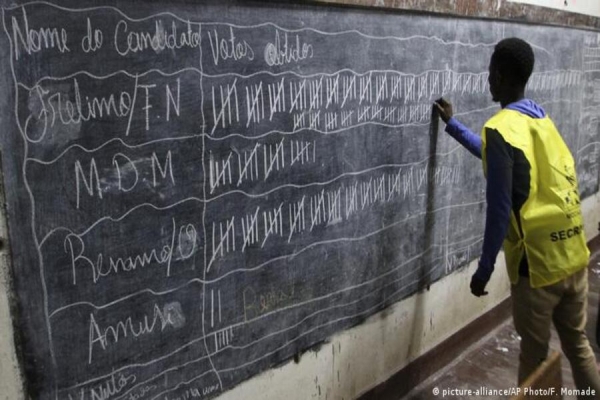 Nome do Candidato Votos obtidos
Frelimo/F.N
M.D.M
Renamo/O
Amusi
Votos
SECR
© picture-alliance/AP Photo/F. Momade